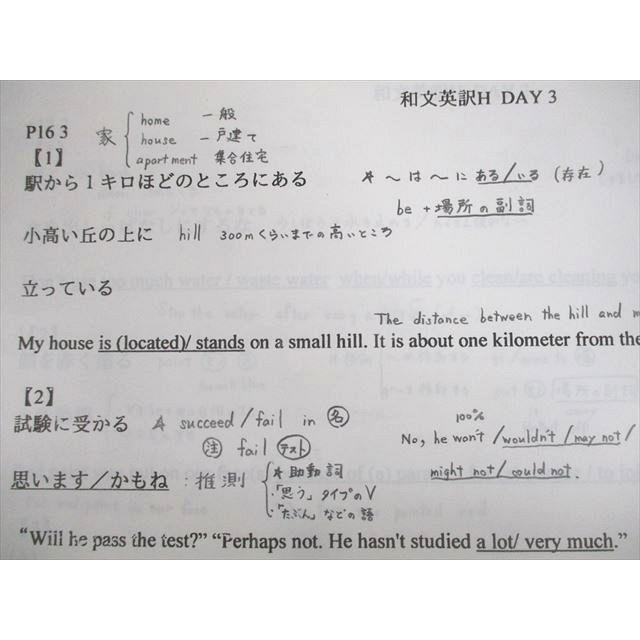 和文英訳H DAY 3
P16 3
家 home 一般
house 一戸建て
apartment 集合住宅
【1】
駅から1キロほどのところにある
* 〜は〜に ある/いる (存在)
be + 場所の副詞
小高い丘の上に hill 300mくらいまでの高いところ
立っている
The distance between the hill and
My house is (located)/ stands on a small hill. It is about one kilometer from the
【2】
試験に受かる ☆ succeed/fail in 名
注 fail テスト
100%
No, he won't /wouldn't /may not/
might not/could not.
思います/かもね : 推測 * 助動詞
・「思う」タイプのV
・「たぶん」などの語
“Will he pass the test?” “Perhaps not. He hasn't studied a lot/ very much.”